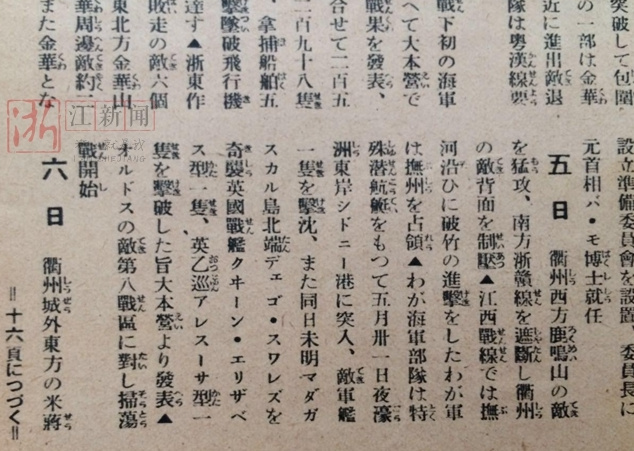 突破して包圍
の一部は金華
近に進出敵退
隊は粤漢線要
戰下初の海軍
へて大本營で
戰果を發表、
合せて二百五
二百九十八隻
、拿捕船舶五
擊墜破飛行機
達す▲浙東作
敗走の敵六個
東北方金華山
華周邊敵約二
また金華とな
設立準備委員會を設置　委員長に
元首相バ・モ博士就任
五日　衢州西方鹿鳴山の敵
を猛攻、南方浙贛線を遮斷し衢州
の敵背面を制壓▲江西戰線では撫
河沿ひに破竹の進擊をしたわが軍
は撫州を占領▲わが海軍部隊は特
殊潜航艇をもつて五月卅一日夜濠
洲東岸シドニー港に突入、敵軍艦
一隻を擊沈、また同日未明マダガ
スカル島北端デェゴ・スワレズを
奇襲英國戰艦クヰーン・エリザベ
ス型一隻、英乙巡アレスーサ型一
隻を擊破した旨大本營より發表▲
オルドスの敵第八戰區に對し掃蕩
戰開始
六日　衢州城外東方の米蔣
＝十六頁につづく＝
浙江新闻